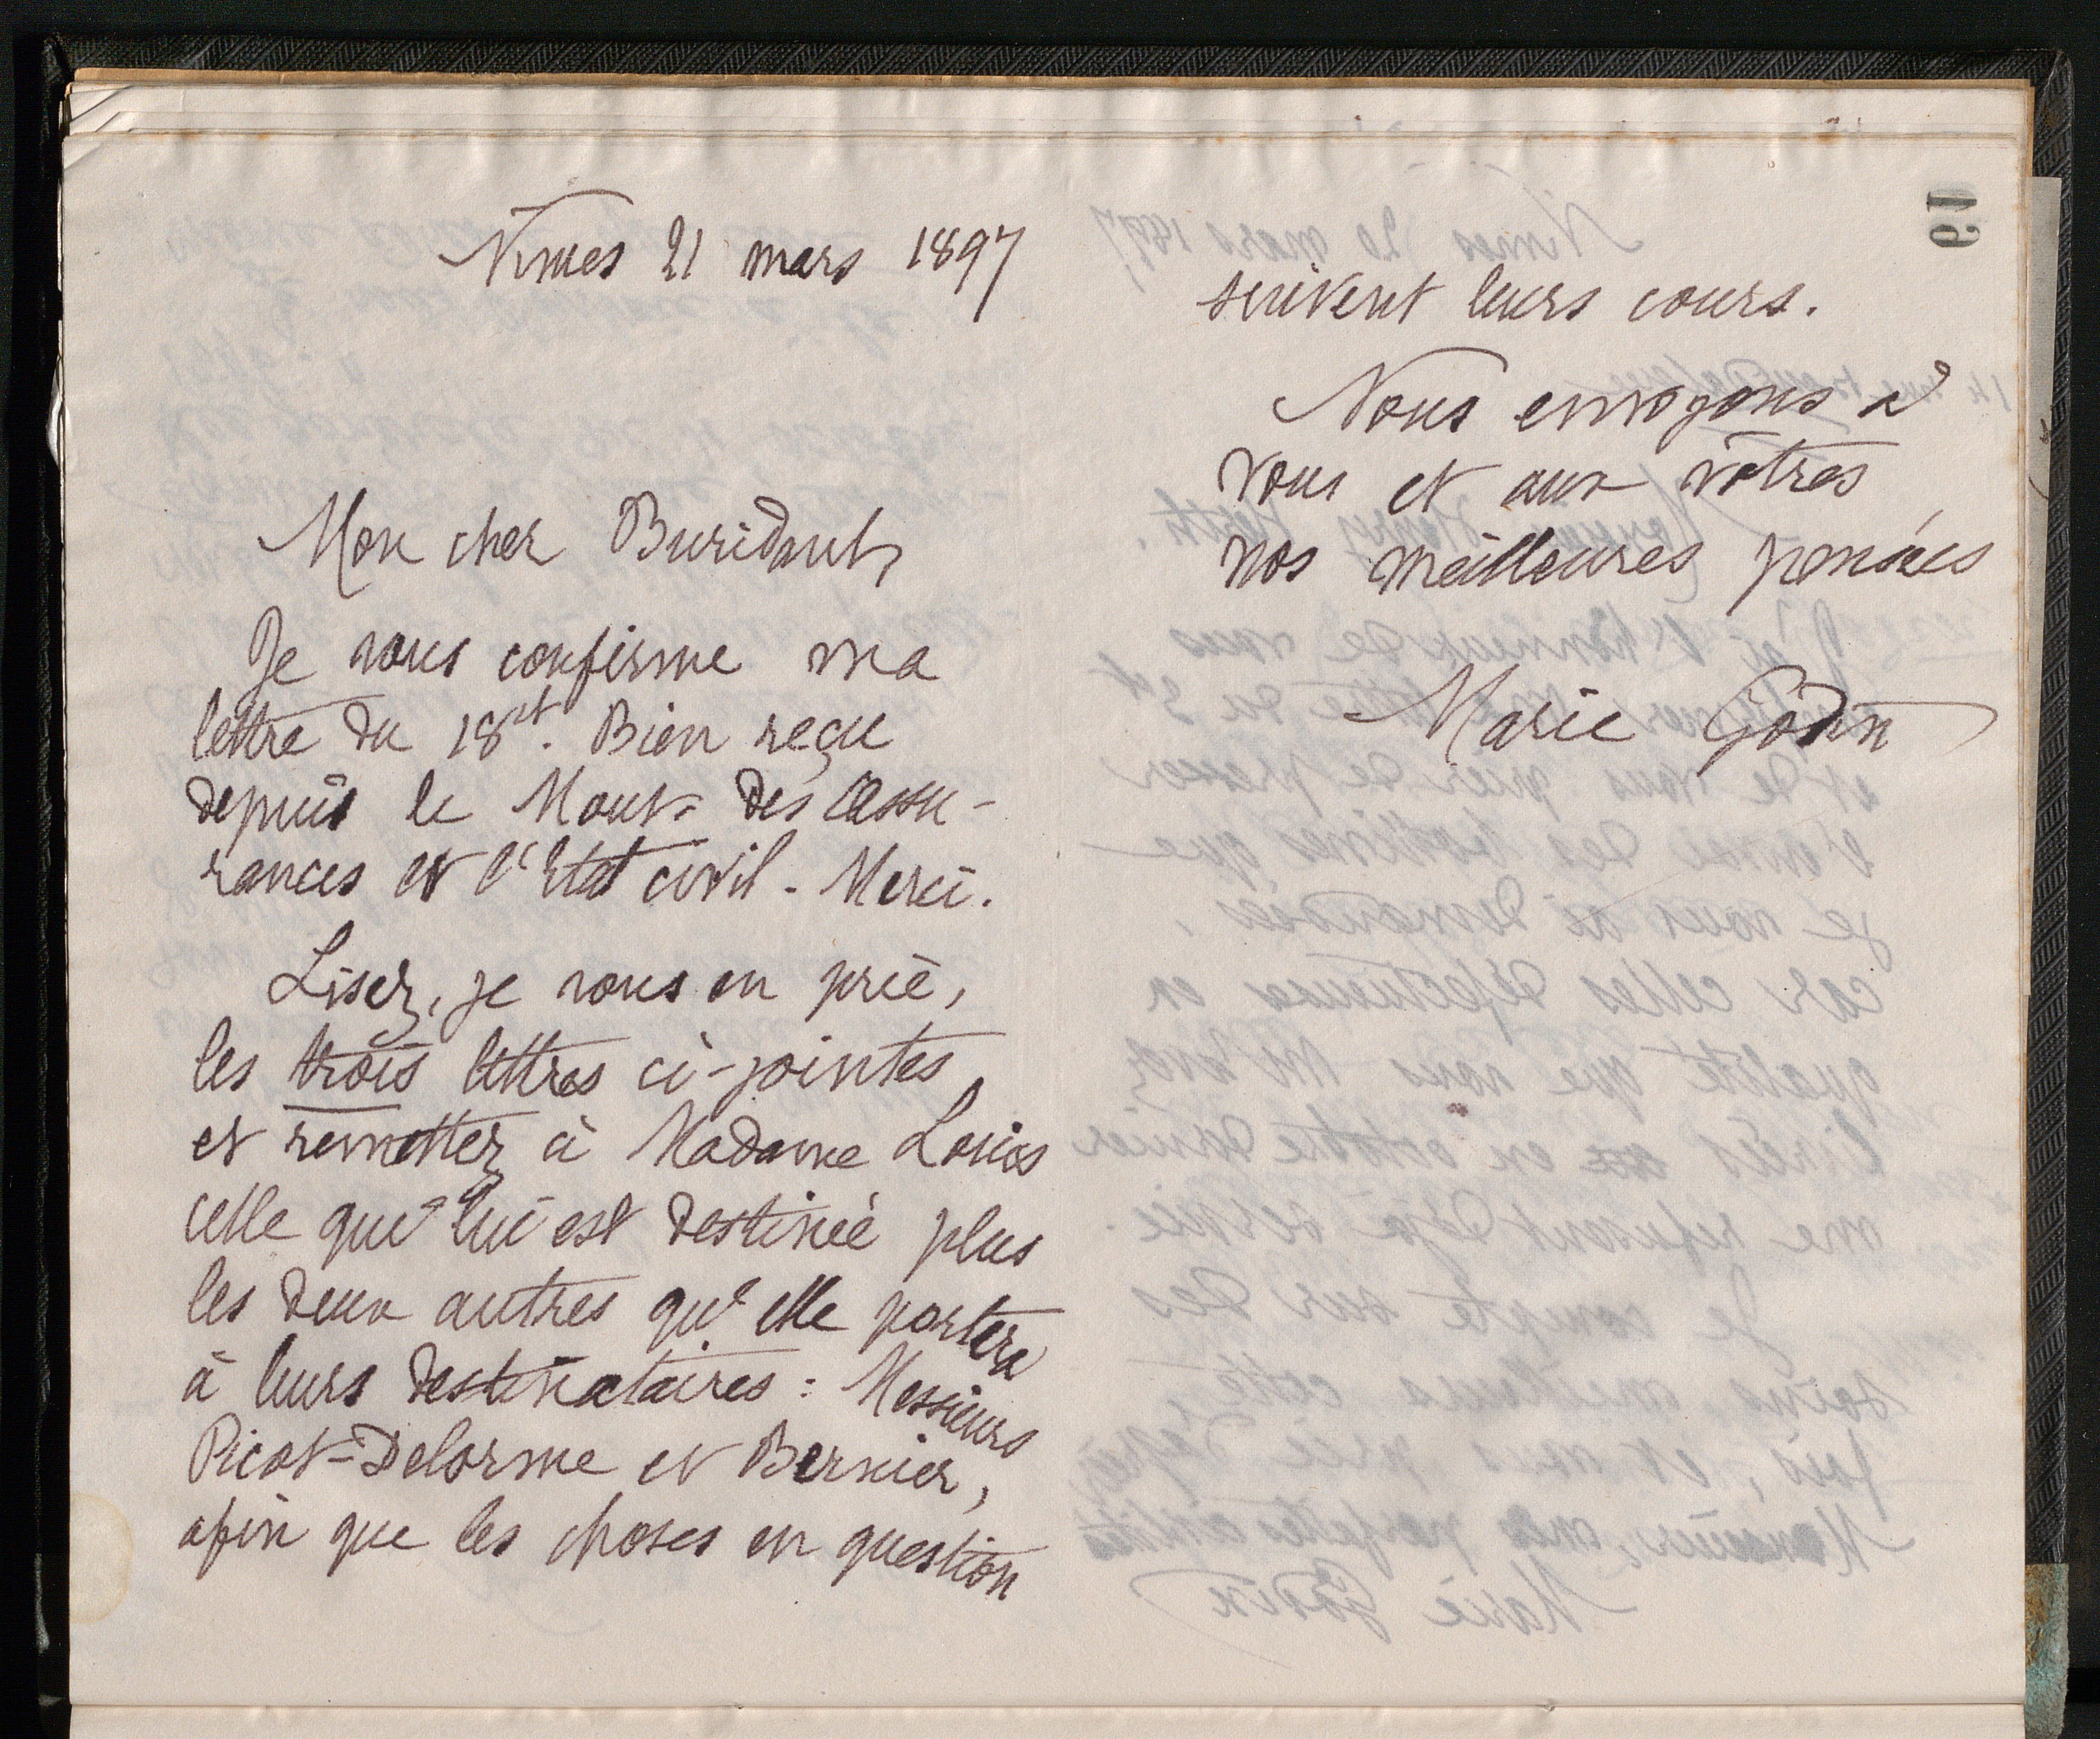 Nimes 21 mars 1897
Mon cher Buridant,
Je vous confirme ma
lettre du 18 ct. Bien reçu
depuis le Mont. des Assu-
rances et l'Etat civil. Merci.
Lisez, je vous en prie,
les trois lettres ci-jointes
et remettez à Madame Louis
celle qui lui est destinée plus
les deux autres qu'elle portera
à leurs destinataires : Messieurs
Picot-Delorme et Bernier,
afin que les choses en question
19
suivent leurs cours.
Nous envoyons à
vous et aux vôtres
nos meilleures pensées
Marie Godin